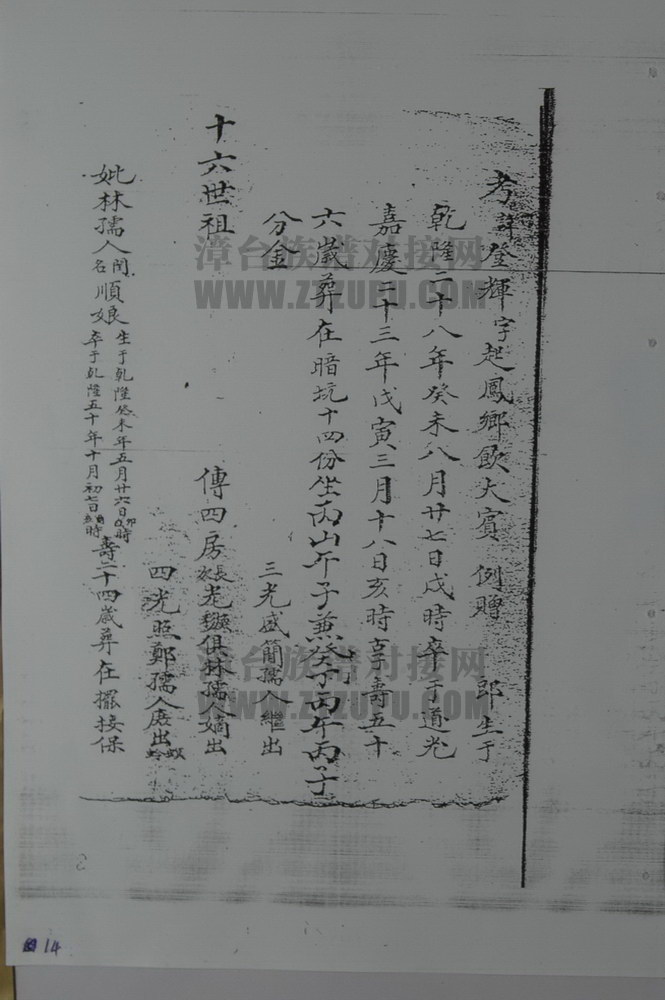 考諱登輝字起鳳鄉飲大賓例贈 郎生于
乾隆二十八年癸未八月廿七日戌時卒于道光
嘉慶二十三年戊寅三月十八日亥時享壽五十
六歲葬在暗坑十四份坐丙山午子兼癸丁丙午丙子
分金
三光盛簡孺人繼出
十六世祖
傳四房長 光 俱林孺人嫡出
四光照鄭孺人庶出
妣林孺人閨名順娘生于乾隆癸未年五月廿六日卯時
卒于乾隆五十年十月初七日 時
壽二十四歲葬在擺接保
漳台族谱对接网
WWW.ZTZUPU.COM
漳台族谱对接网
WWW.ZTZUPU.COM
14